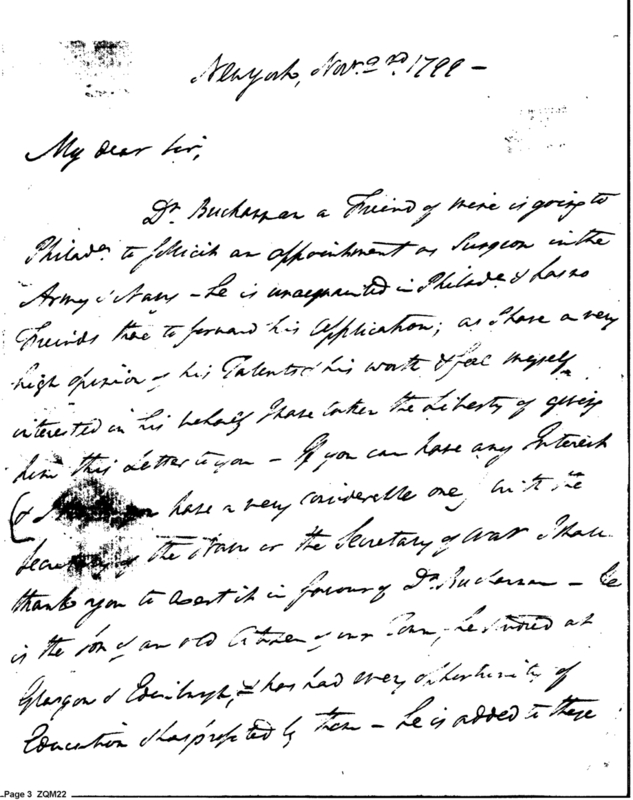 New York, Nov. 2nd. 1799 –
My dear Sir,
Dr. Buchannan a Friend of mine is going to
Philada. to sollicit an appointment as Surgeon in the
Army or Navy – he is unacquainted in Philada. & has no
Freinds there to forward his application; as I have a very
high opinion of his Talents & his worth & feel myself
interested in his behalf I have taken the Liberty of giving
him this Letter to you – If you can have any Interest
(& have a very considerable one) with the
Secretary of the Navy or the Secretary of War I shall
thank you to exert it in favour of Dr. Buchannan – he
is the son of an old Citizen of our Town, he studied at
Glasgow & Edinburgh, & has had every opportunity of
Education & has profited by them – he is added to these
Page 3 ZQM22